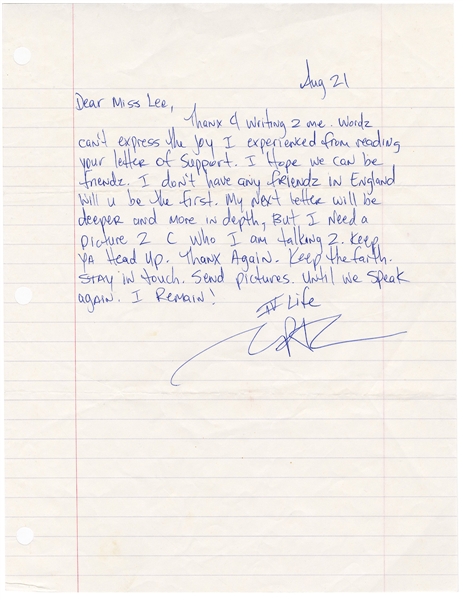 Aug 21
Dear Miss Lee,
Thanx 4 writing 2 me. Wordz
can't express the joy I experienced from reading
your letter of support. I Hope we can be
friendz. I don't have any friendz in England
will u be the first. My next letter will be
deeper and more in depth, But I need a
picture 2 C who I am talking 2. Keep
ya Head up. Thanx Again. Keep the faith.
STAY in touch. Send pictures. Until we speak
again. I Remain!
IV Life